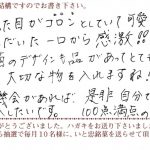 結構ですのでお書き下さい。
た目がゴロンとしていて可愛
だいた一口から感激!!
のデザインも品があってとても
大切な物を入れますね!
機会があれば、是非自分で
いたしたいです。 100点満点の
がとうございました。ハガキをお送り下さいまし
抽選で毎月10名様に、いと忠銘菓を送らせて頂